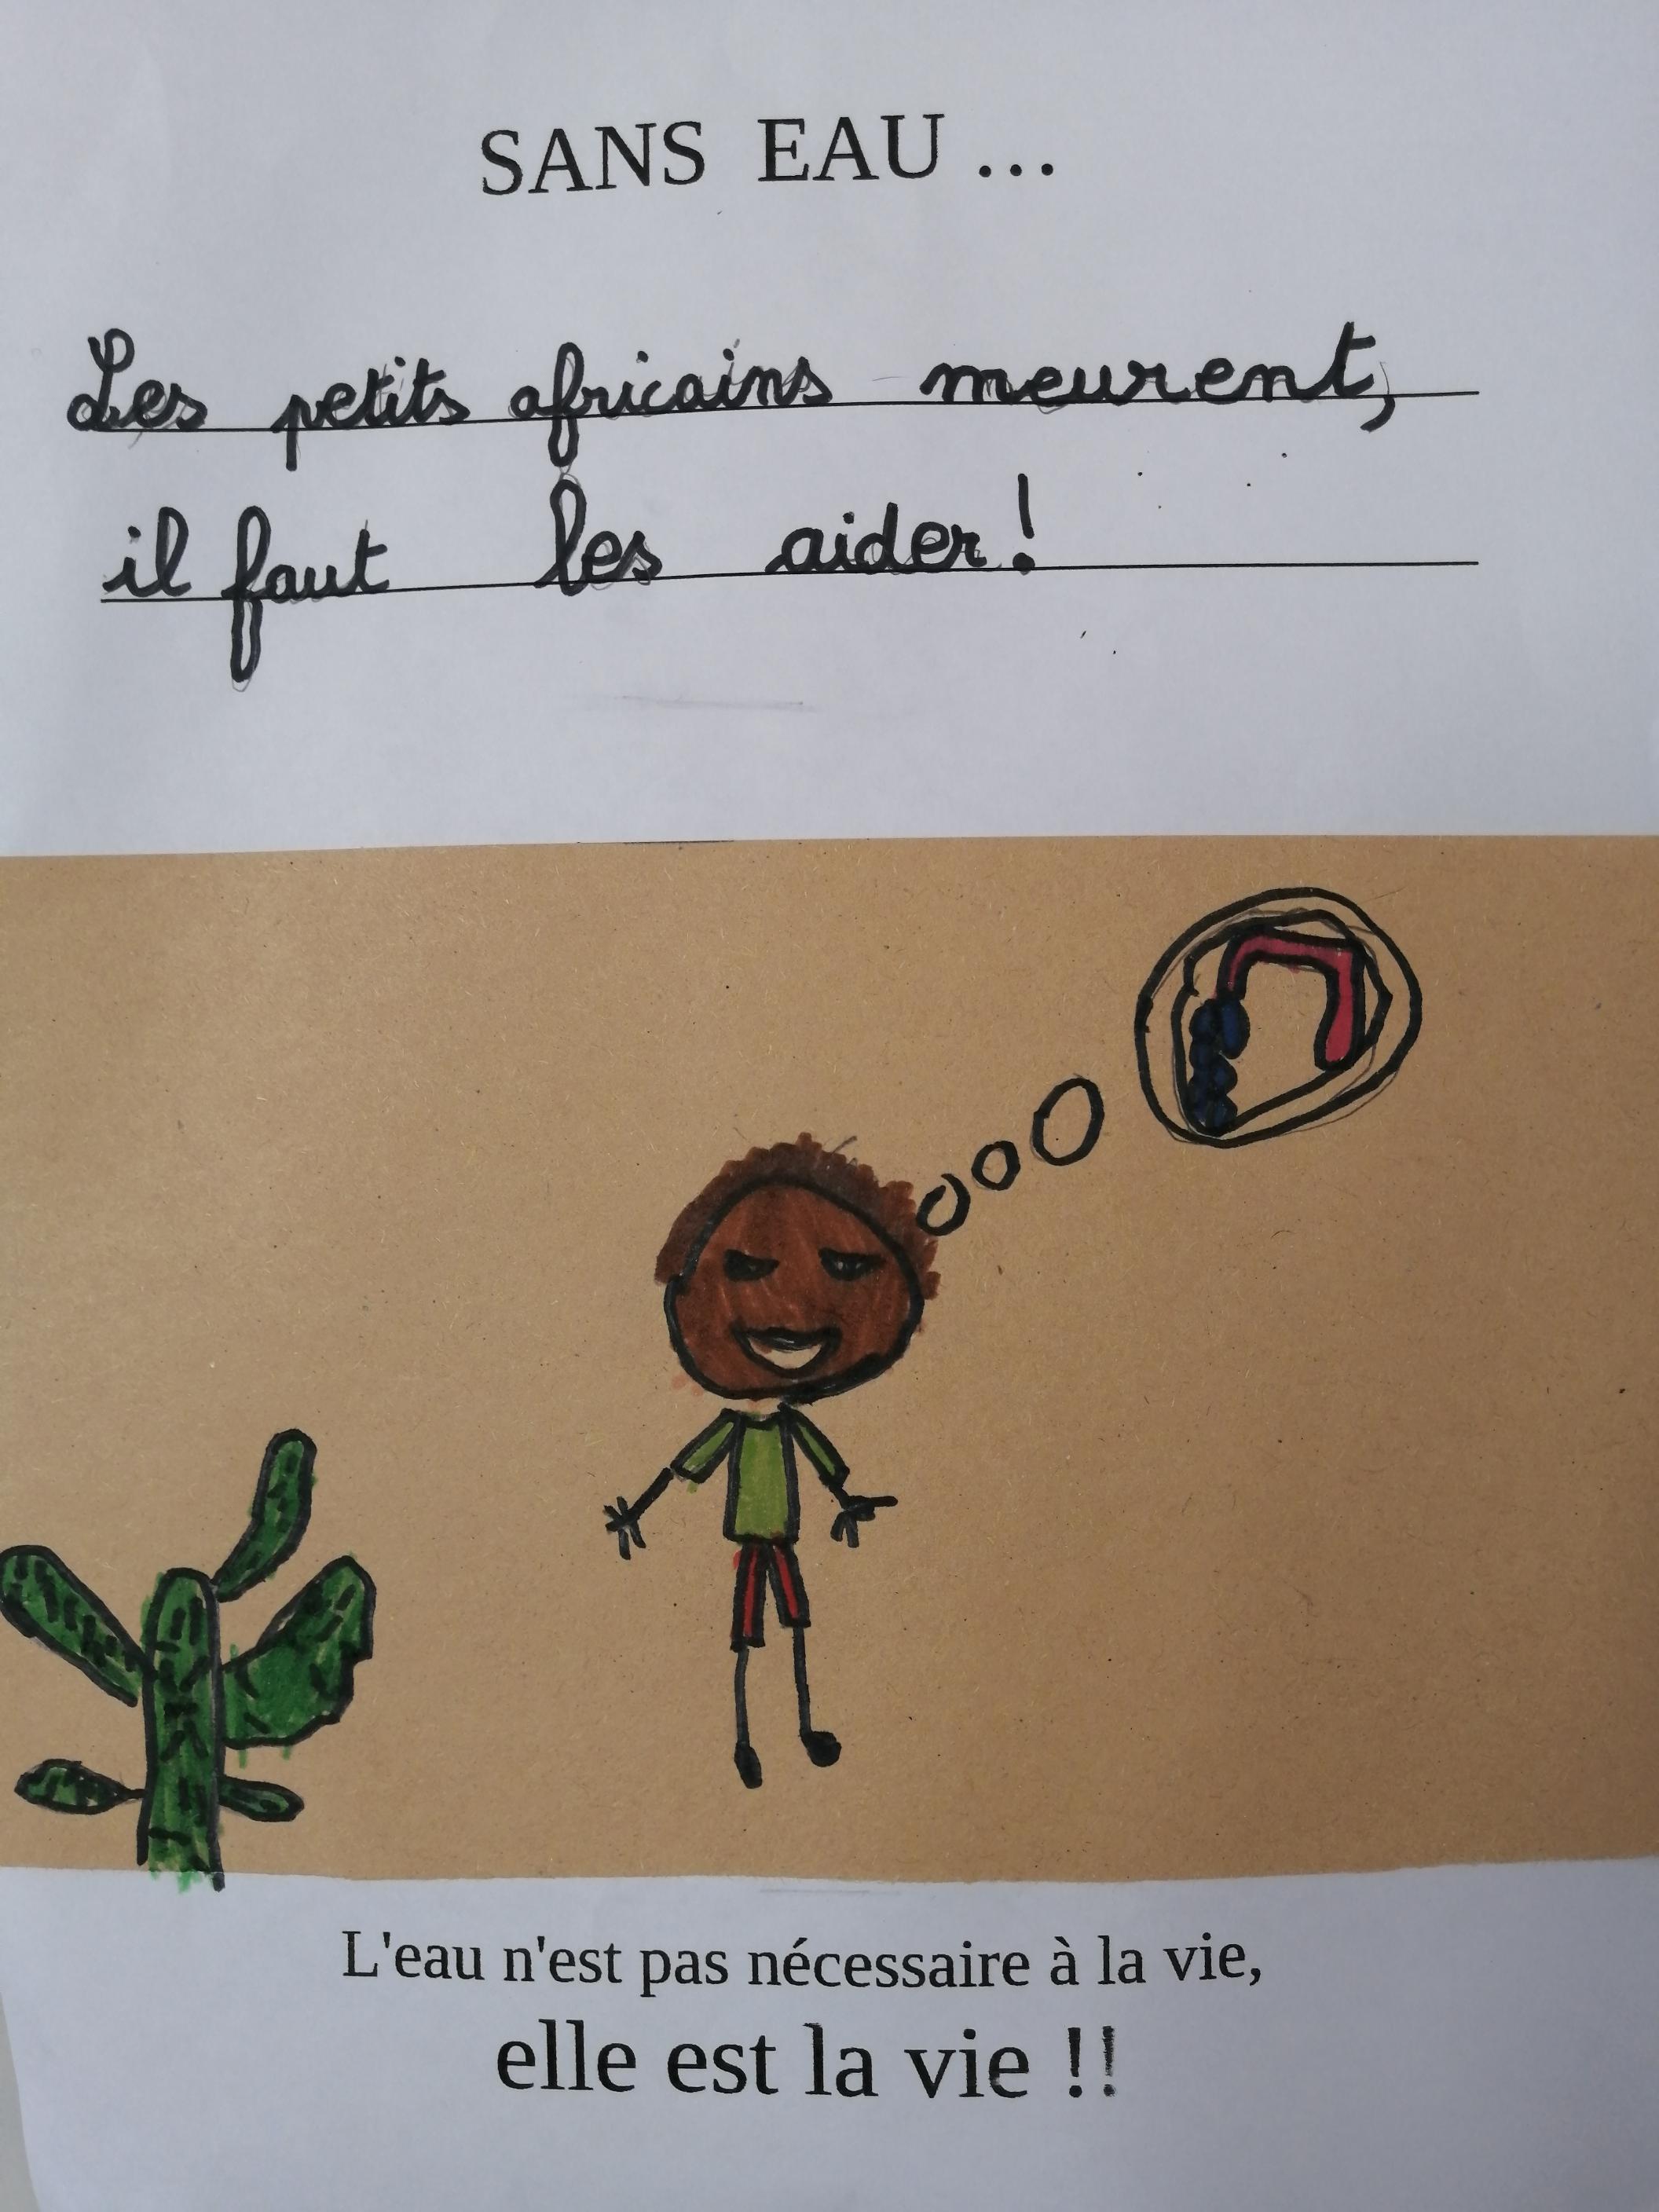 SANS EAU ...
Les petits africains meurent,
il faut les aider!
L'eau n'est pas nécessaire à la vie,
elle est la vie !!